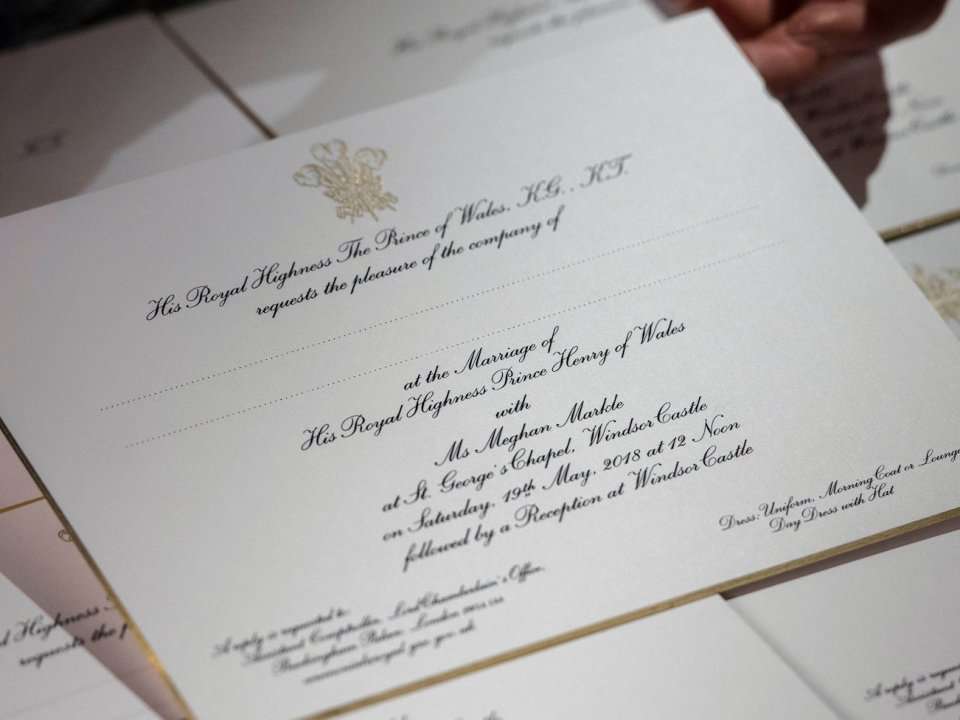 His Royal Highness The Prince of Wales, K.G., K.T.
requests the pleasure of the company of
at the Marriage of
His Royal Highness Prince Henry of Wales
with
Ms Meghan Markle
at St. George's Chapel, Windsor Castle
on Saturday, 19th May, 2018 at 12 Noon
followed by a Reception at Windsor Castle
Dress: Uniform, Morning Coat or Lounge
Day Dress with Hat
A reply is requested to:
Assistant Comptroller, Lord Chamberlain's Office,
Buckingham Palace, London
Highness
requests the p
A reply is requested